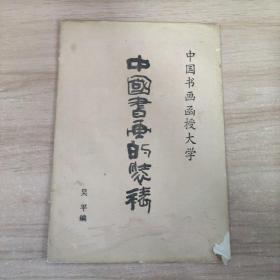 中国书画函授大学
中國書画的裝裱
吴平编